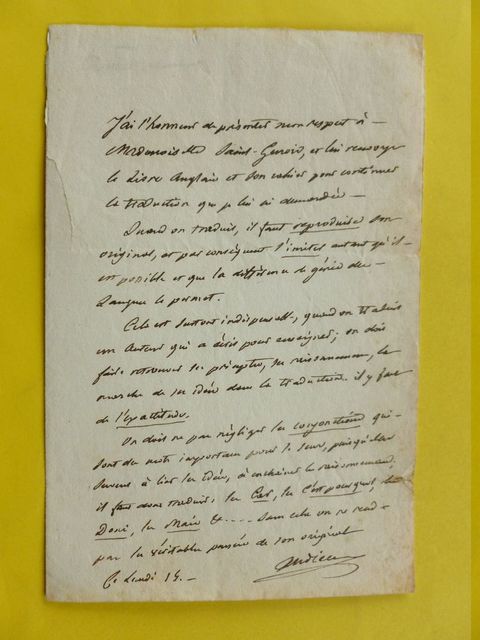 J'ai l'honneur de présenter mon respect à
Mademoiselle Saint-Genois, et lui renvoye
le Livre Anglais et son cahier pour continuer
la traduction que je lui ai demandée
Quand on traduit, il faut reproduire son
original, et par conséquent l'imiter autant qu'il
est possible et que la différence de génie de
Langue le permet.
Cela est surtout indispensable, quand on traduit
un Auteur qui a écrit pour enseigner; on doit
faire retrouver ses préceptes, ses raisonnemens, la
marche de ses idées dans la traduction. il y faut
de l'exactitude.
On doit ne pas négliger les conjonctions qui
sont des mots importans pour le sens, puisqu'elles
servent à lier les idées, à enchaîner le raisonnement,
il faut donc traduire les Car, les C'est pourquoi, les
Donc, les Mais &.... sans cela on ne rend
pas la véritable pensée de son original
Ce Lundi 14.